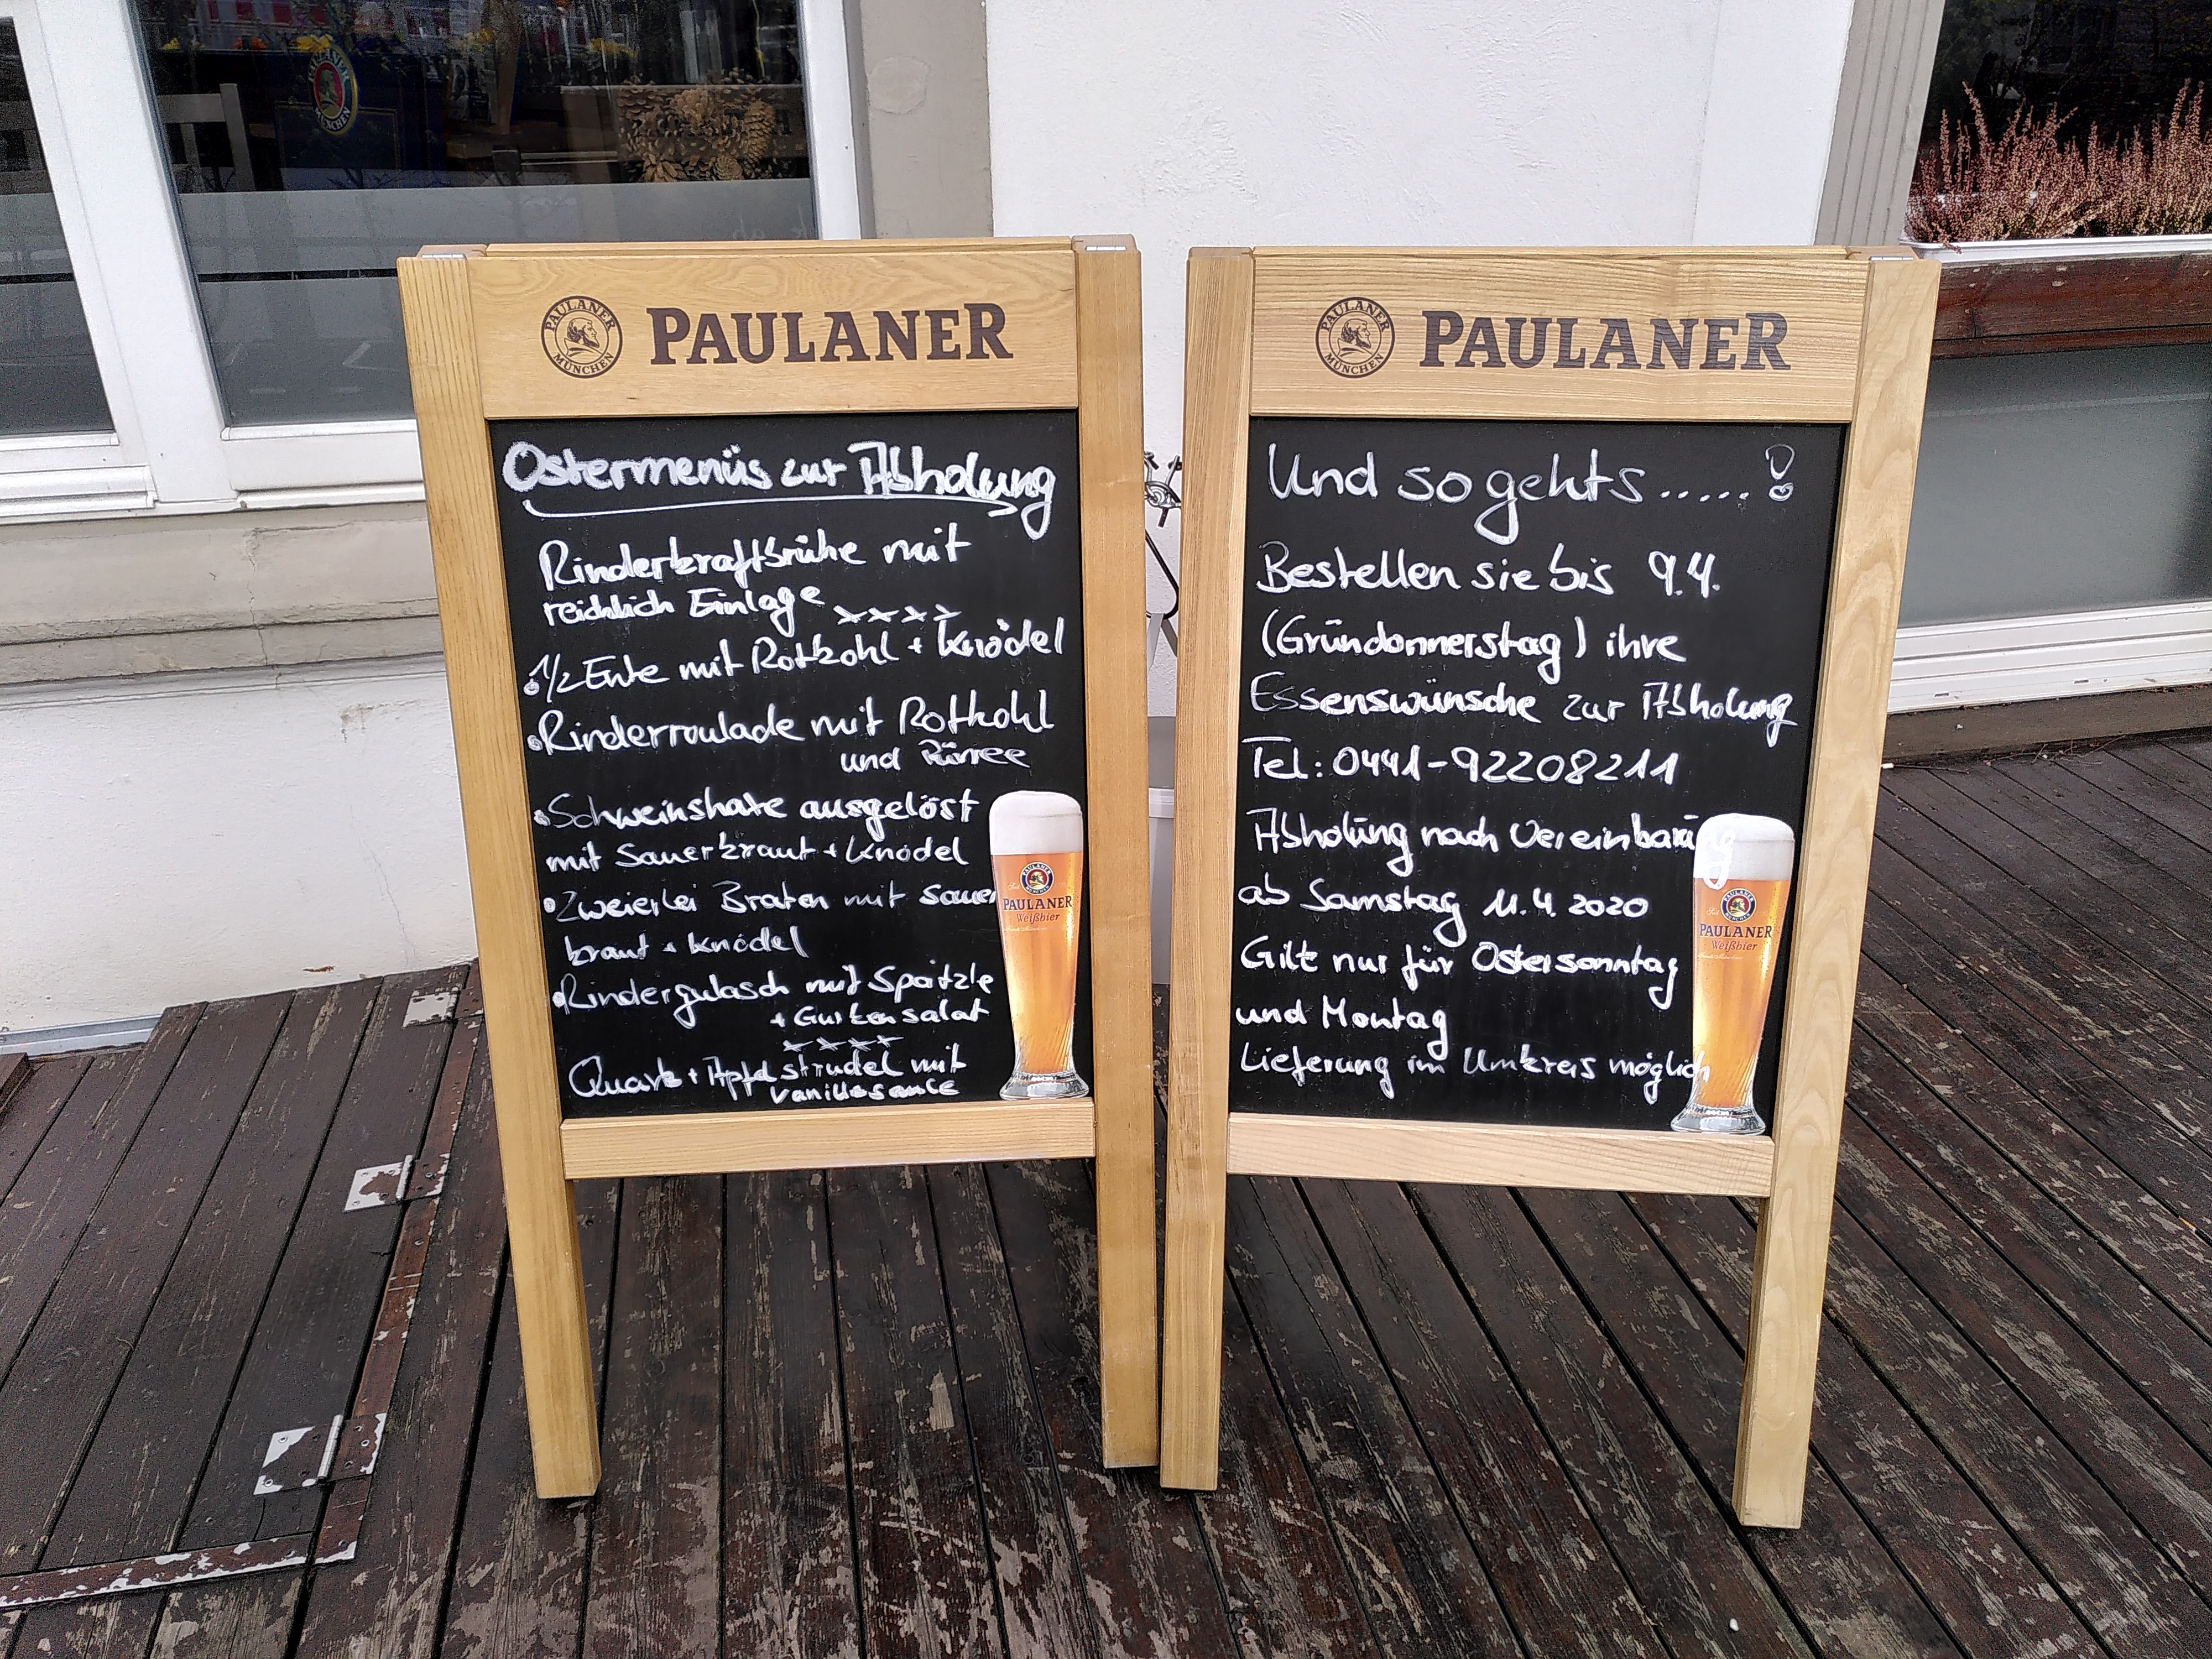 PAULANER
MÜNCHEN
PAULANER
MÜNCHEN
PAULANER
Ostermenüs zur Abholung
Rinderkraftbrühe mit
reichlich Einlage xxxx
1/2 Ente mit Rotkohl + Knödel
Rinderroulade mit Rotkohl
und Pürree
Schweinshaxe ausgelöst
mit Sauerkraut + Knödel
Zweierlei Braten mit Sauer
kraut + Knödel
Rindergulasch mit Spätzle
+ Gurkensalat
xxxx
Quark + Apfelstrudel mit
Vanillesauce
PAULANER
Weißbier
PAULANER
MÜNCHEN
PAULANER
Und so gehts.....!
Bestellen sie bis 9.4.
(Gründonnerstag) ihre
Essenswünsche zur Abholung
Tel.: 0441-92208211
Abholung nach Vereinbarung
ab Samstag 11.4.2020
Gilt nur für Ostersonntag
und Montag
Lieferung im Umkreis möglich
PAULANER
Weißbier